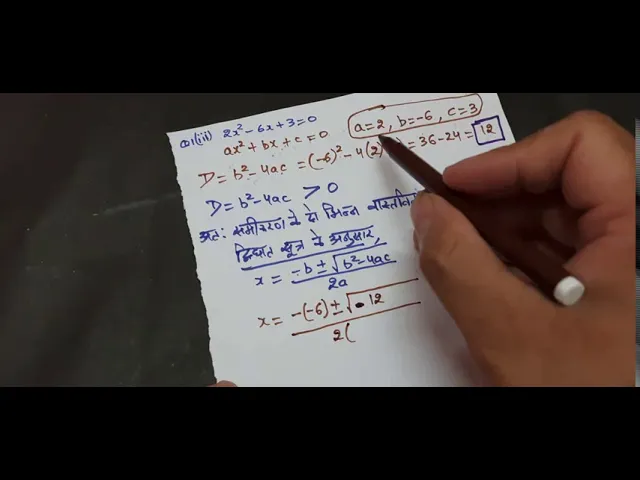 Q1(iii) 2x²-6x+3=0
a=2, b=-6, c=3
ax²+bx+c=0
D=b²-4ac = (-6)²-4(2) = 36-24= 12
D=b²-4ac > 0
अतः समीकरण के दो भिन्न
द्विघात सूत्र के अनुसार,
x = -b ± √b²-4ac / 2a
x = -(-6) ± √ 12 / 2(